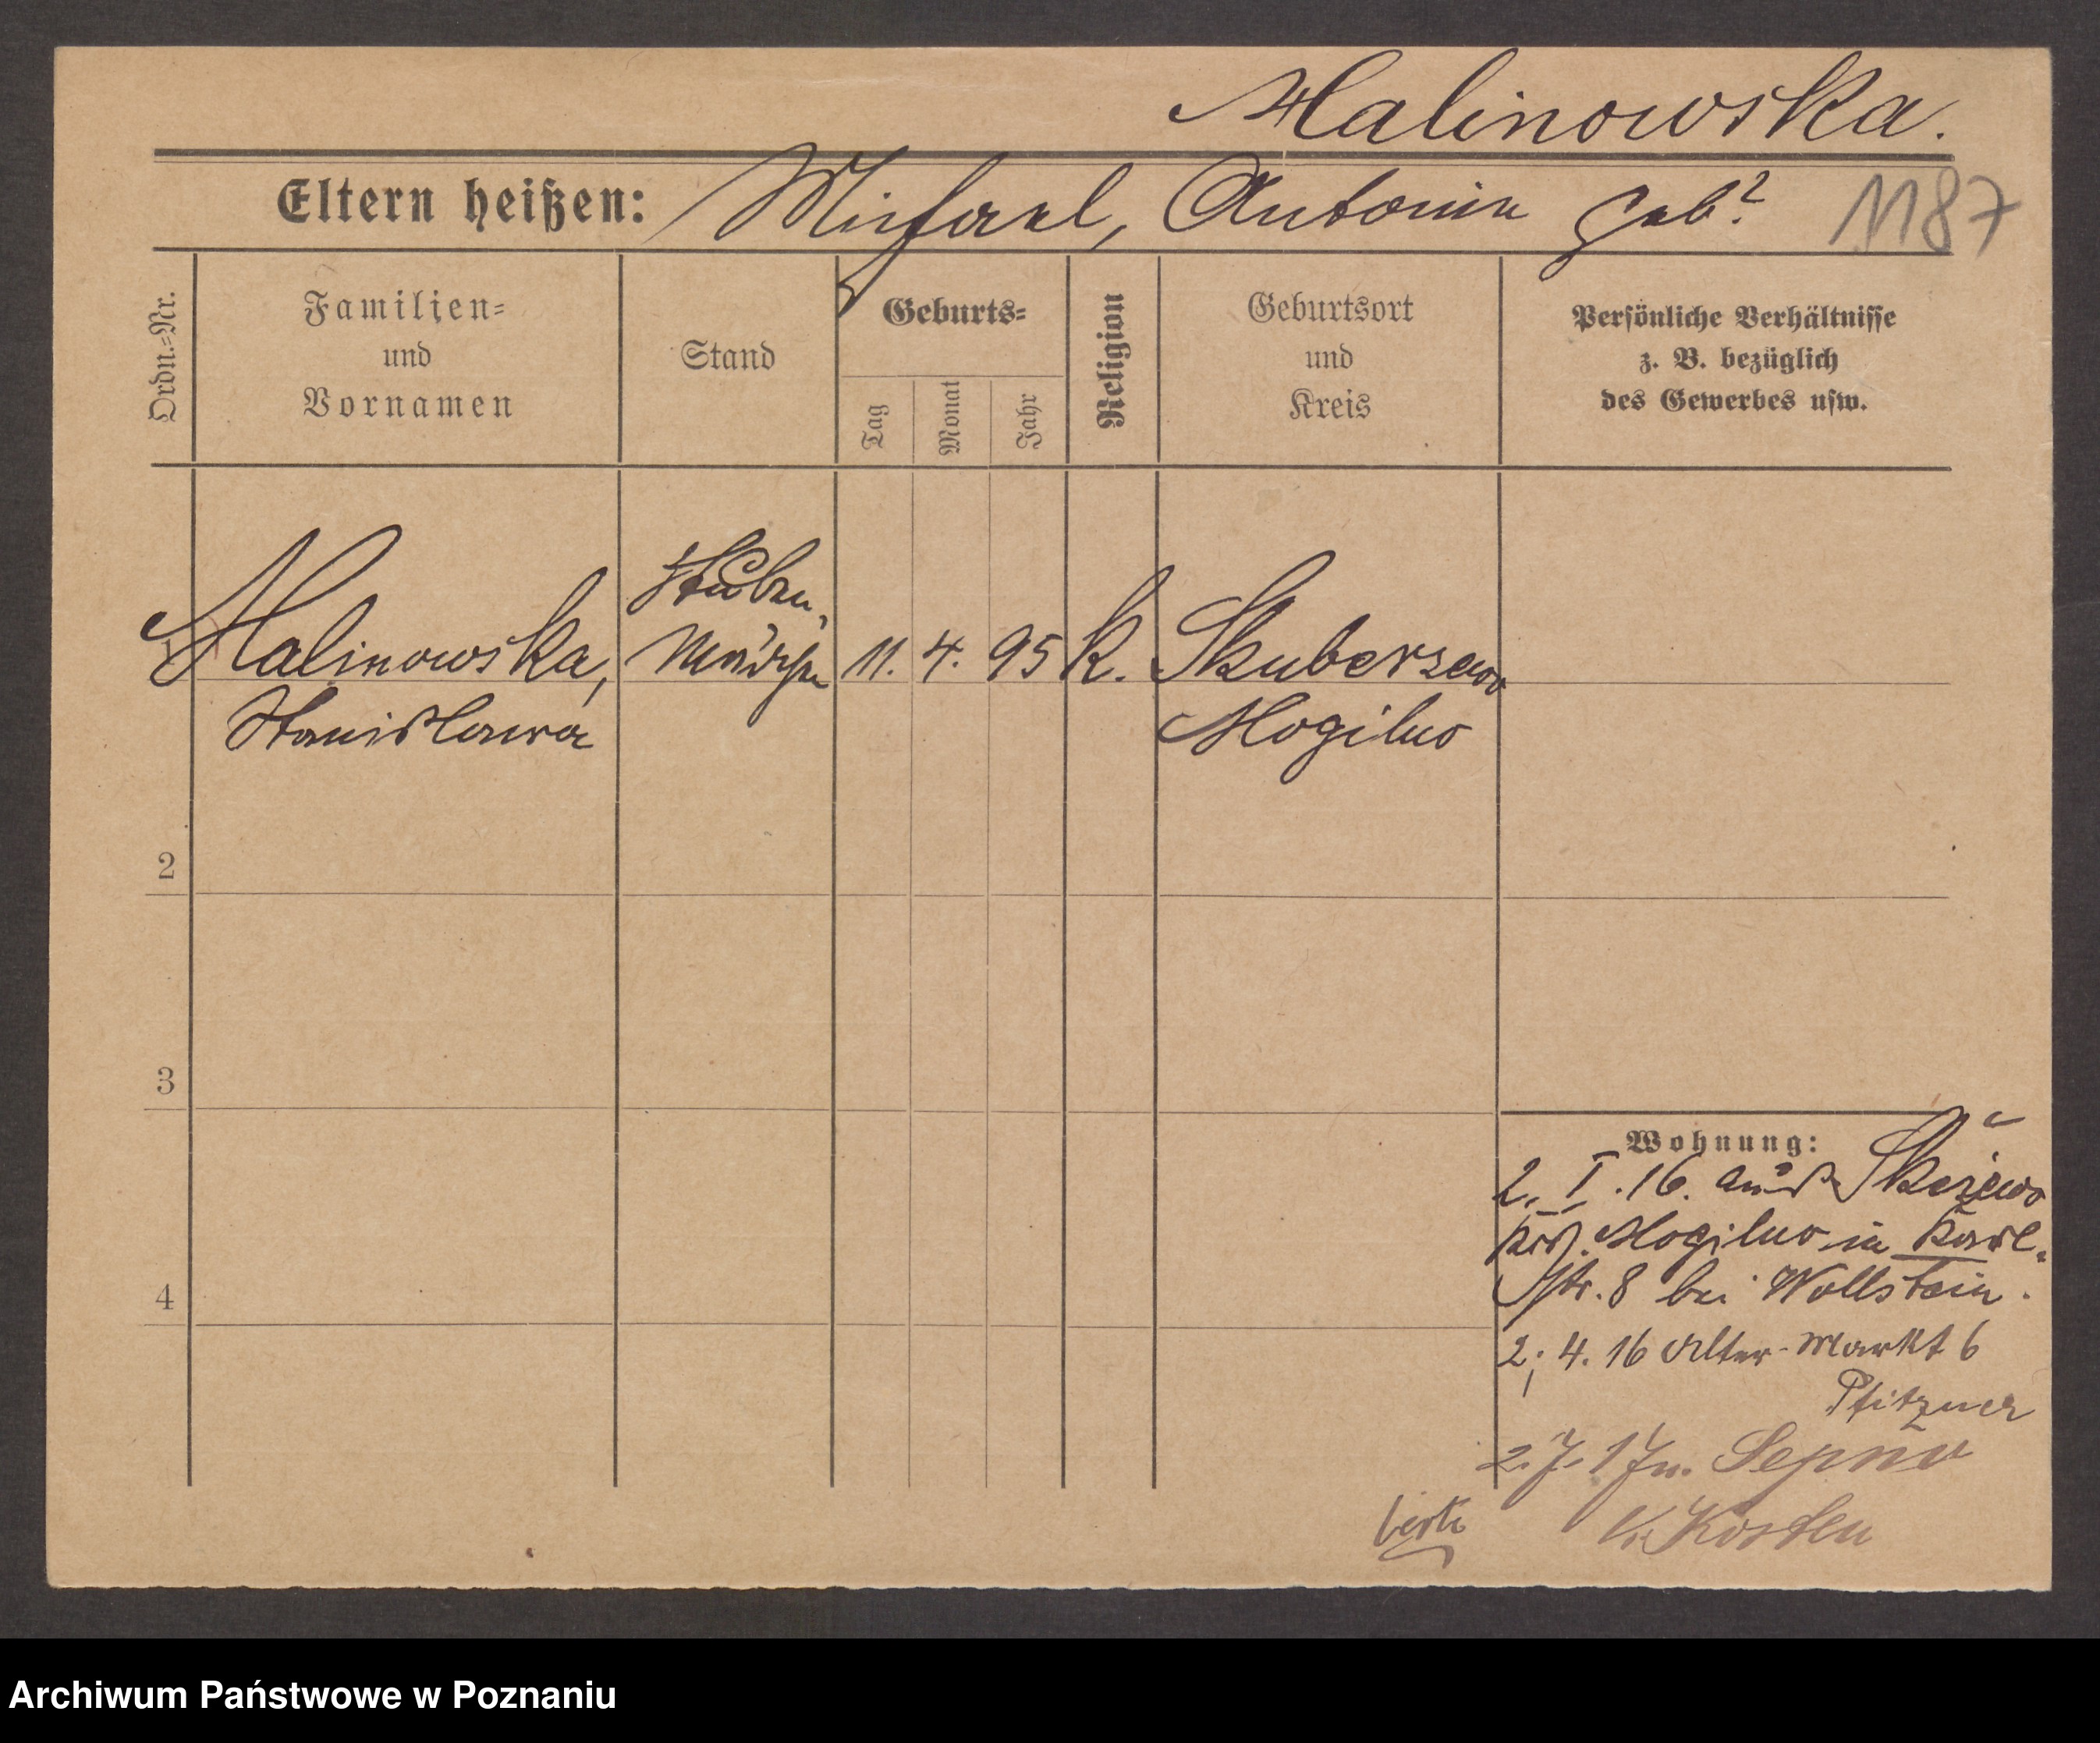 Malinowska.
Eltern heißen: Michael, Antonin geb?
1187
Ordn.-Nr.
Familien-
und
Vornamen
Stand
Geburts-
Tag
Monat
Jahr
Religion
Geburtsort
und
Kreis
Persönliche Verhältnisse
z. B. bezüglich
des Gewerbes usw.
1 Malinowska, Stuben- 11. 4. 95 K. Skuberzewo
Stanislawa Mogilno
2
3
4
Wohnung:
2. I. 16. aus
Mogilno in Karl-
Str. 8 bei Wollstein.
2. 4. 16 Alter-Markt 6
Pfitzner
2. 7. 17 n. Sepno
Kr. Kosten
Archiwum Państwowe w Poznaniu